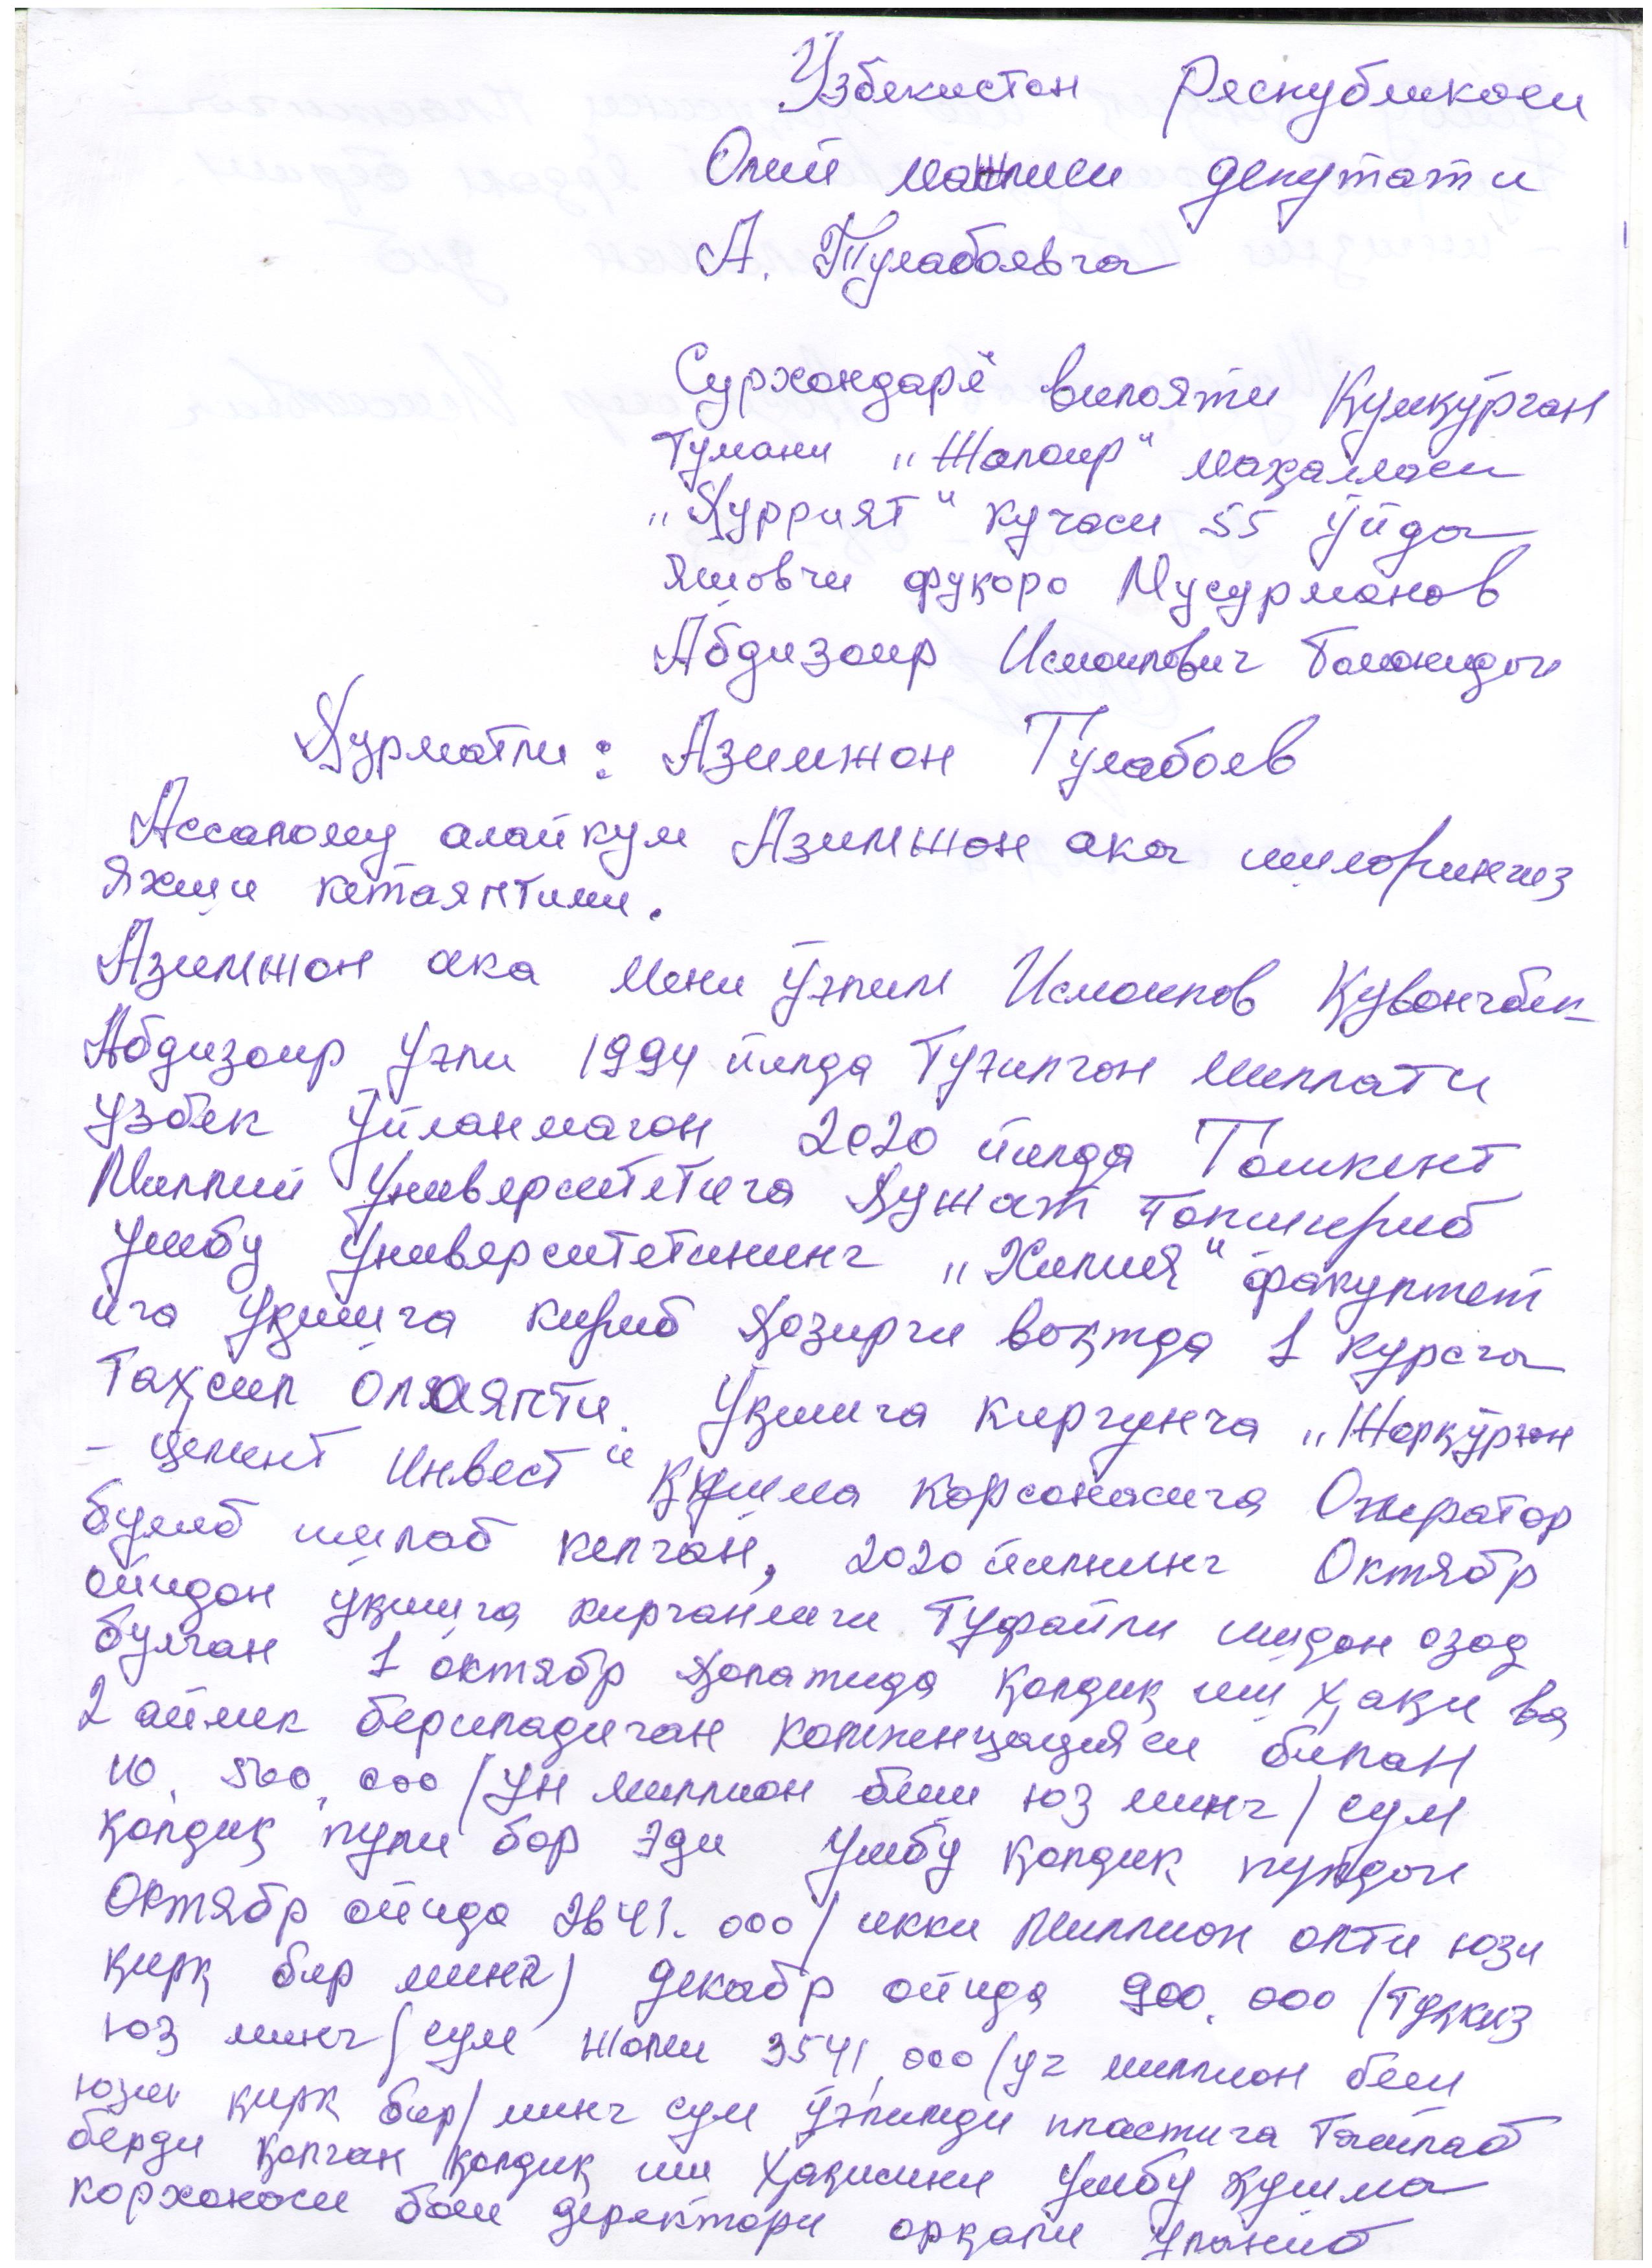 Ўзбекистон Республикаси
Олий мажлиси депутати
А. Тулабоевга
Сурхондарё вилояти Қумқўрғон
Тумани „Жалоир" маҳалласи
„Ҳуррият" кучаси 55 ўйда
яшовчи фуқаро Мусурмонов
Абдизоир Исмоилович Томонидан
Ҳурматли: Азимжон Тулабоев
Ассалому алайкум Азимжон ака ишларингиз
яхши кетаяптими.
Азимжон ака мени ўғлим Исмоилов Қувончбек
Абдизоир ўғли 1994 йилда Туғилгон миллати
ўзбек ўйланмагон 2020 йилда Тошкент
Миллий Университетига Ҳужжат Топшириб
ушбу Университетининг „Химия" факультет
ига ўқишга кириб ҳозирги вақтда 1 курсга
Таҳсил олаяпти. Ўқишга киргунча „Жарқўрғон
- цемент Инвест" қўшма корхонасига Оператор
булиб ишлаб келган, 2020 йилнинг Октябр
ойидан ўқишга кирганлиги Туфайли ишдан озод
булган 1 октябр ҳолатида қолдиқ иш ҳақи ва
2 ойлик бериладиган компенцацияси билан
10. 500. 000 /ўн миллион беш юз минг/ сум
қолдиқ пули бор эди Ушбу қолдиқ пулдан
Октябр ойида 2641. 000 /икки миллион олти юзи
қирқ бир минг) Декабр ойида 900. 000 /Туққиз
юз минг/ сум жами 3541, 000 /уч миллион беш
юзи қирқ бир/ минг сум ўғлимди пластига Ташлаб
берди қолган қолдиқ иш ҳақисини Ушбу қушма
корхонаси бош деректори орқали